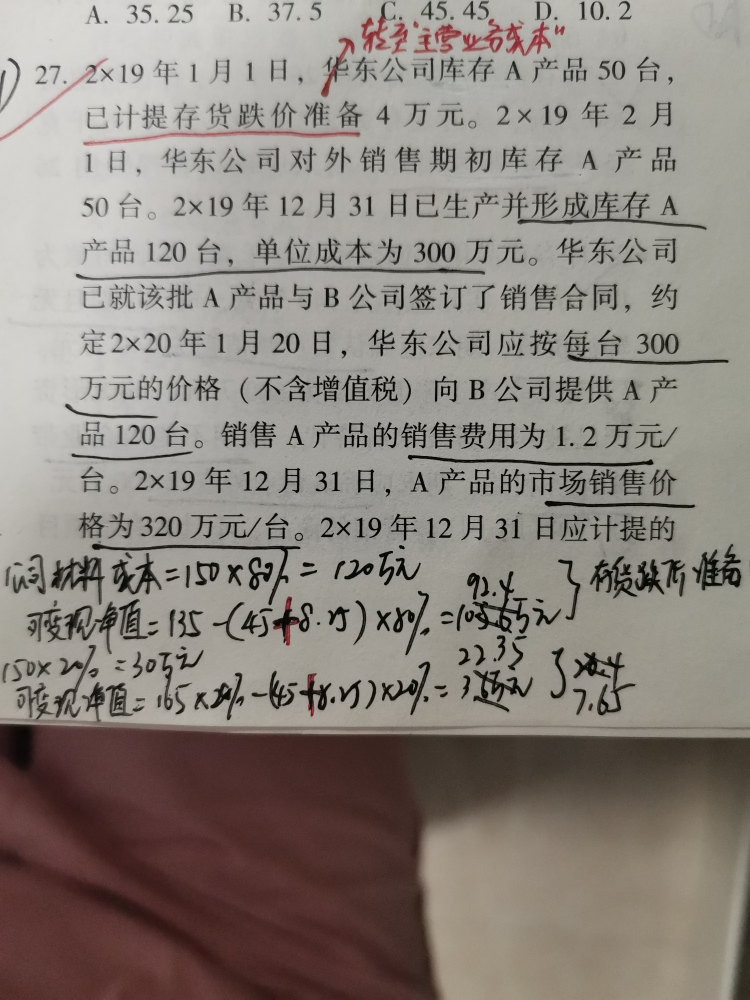 A. 35.25 B. 37.5 C. 45.45 D. 10.2
转至"主营业务成本"
27. 2×19年1月1日，华东公司库存A产品50台，
已计提存货跌价准备4万元。2×19年2月
1日，华东公司对外销售期初库存A产品
50台。2×19年12月31日已生产并形成库存A
产品120台，单位成本为300万元。华东公司
已就该批A产品与B公司签订了销售合同，约
定2×20年1月20日，华东公司应按每台300
万元的价格（不含增值税）向B公司提供A产
品120台。销售A产品的销售费用为1.2万元/
台。2×19年12月31日，A产品的市场销售价
格为320万元/台。2×19年12月31日应计提的
材料成本=150×80%=120万元
92.4
存货跌价准备
可变现净值=135-(45+8.25)×80%=
22.35
150×20%=30万元
可变现净值=165×20%-(45+8.25)×20%=
7.65